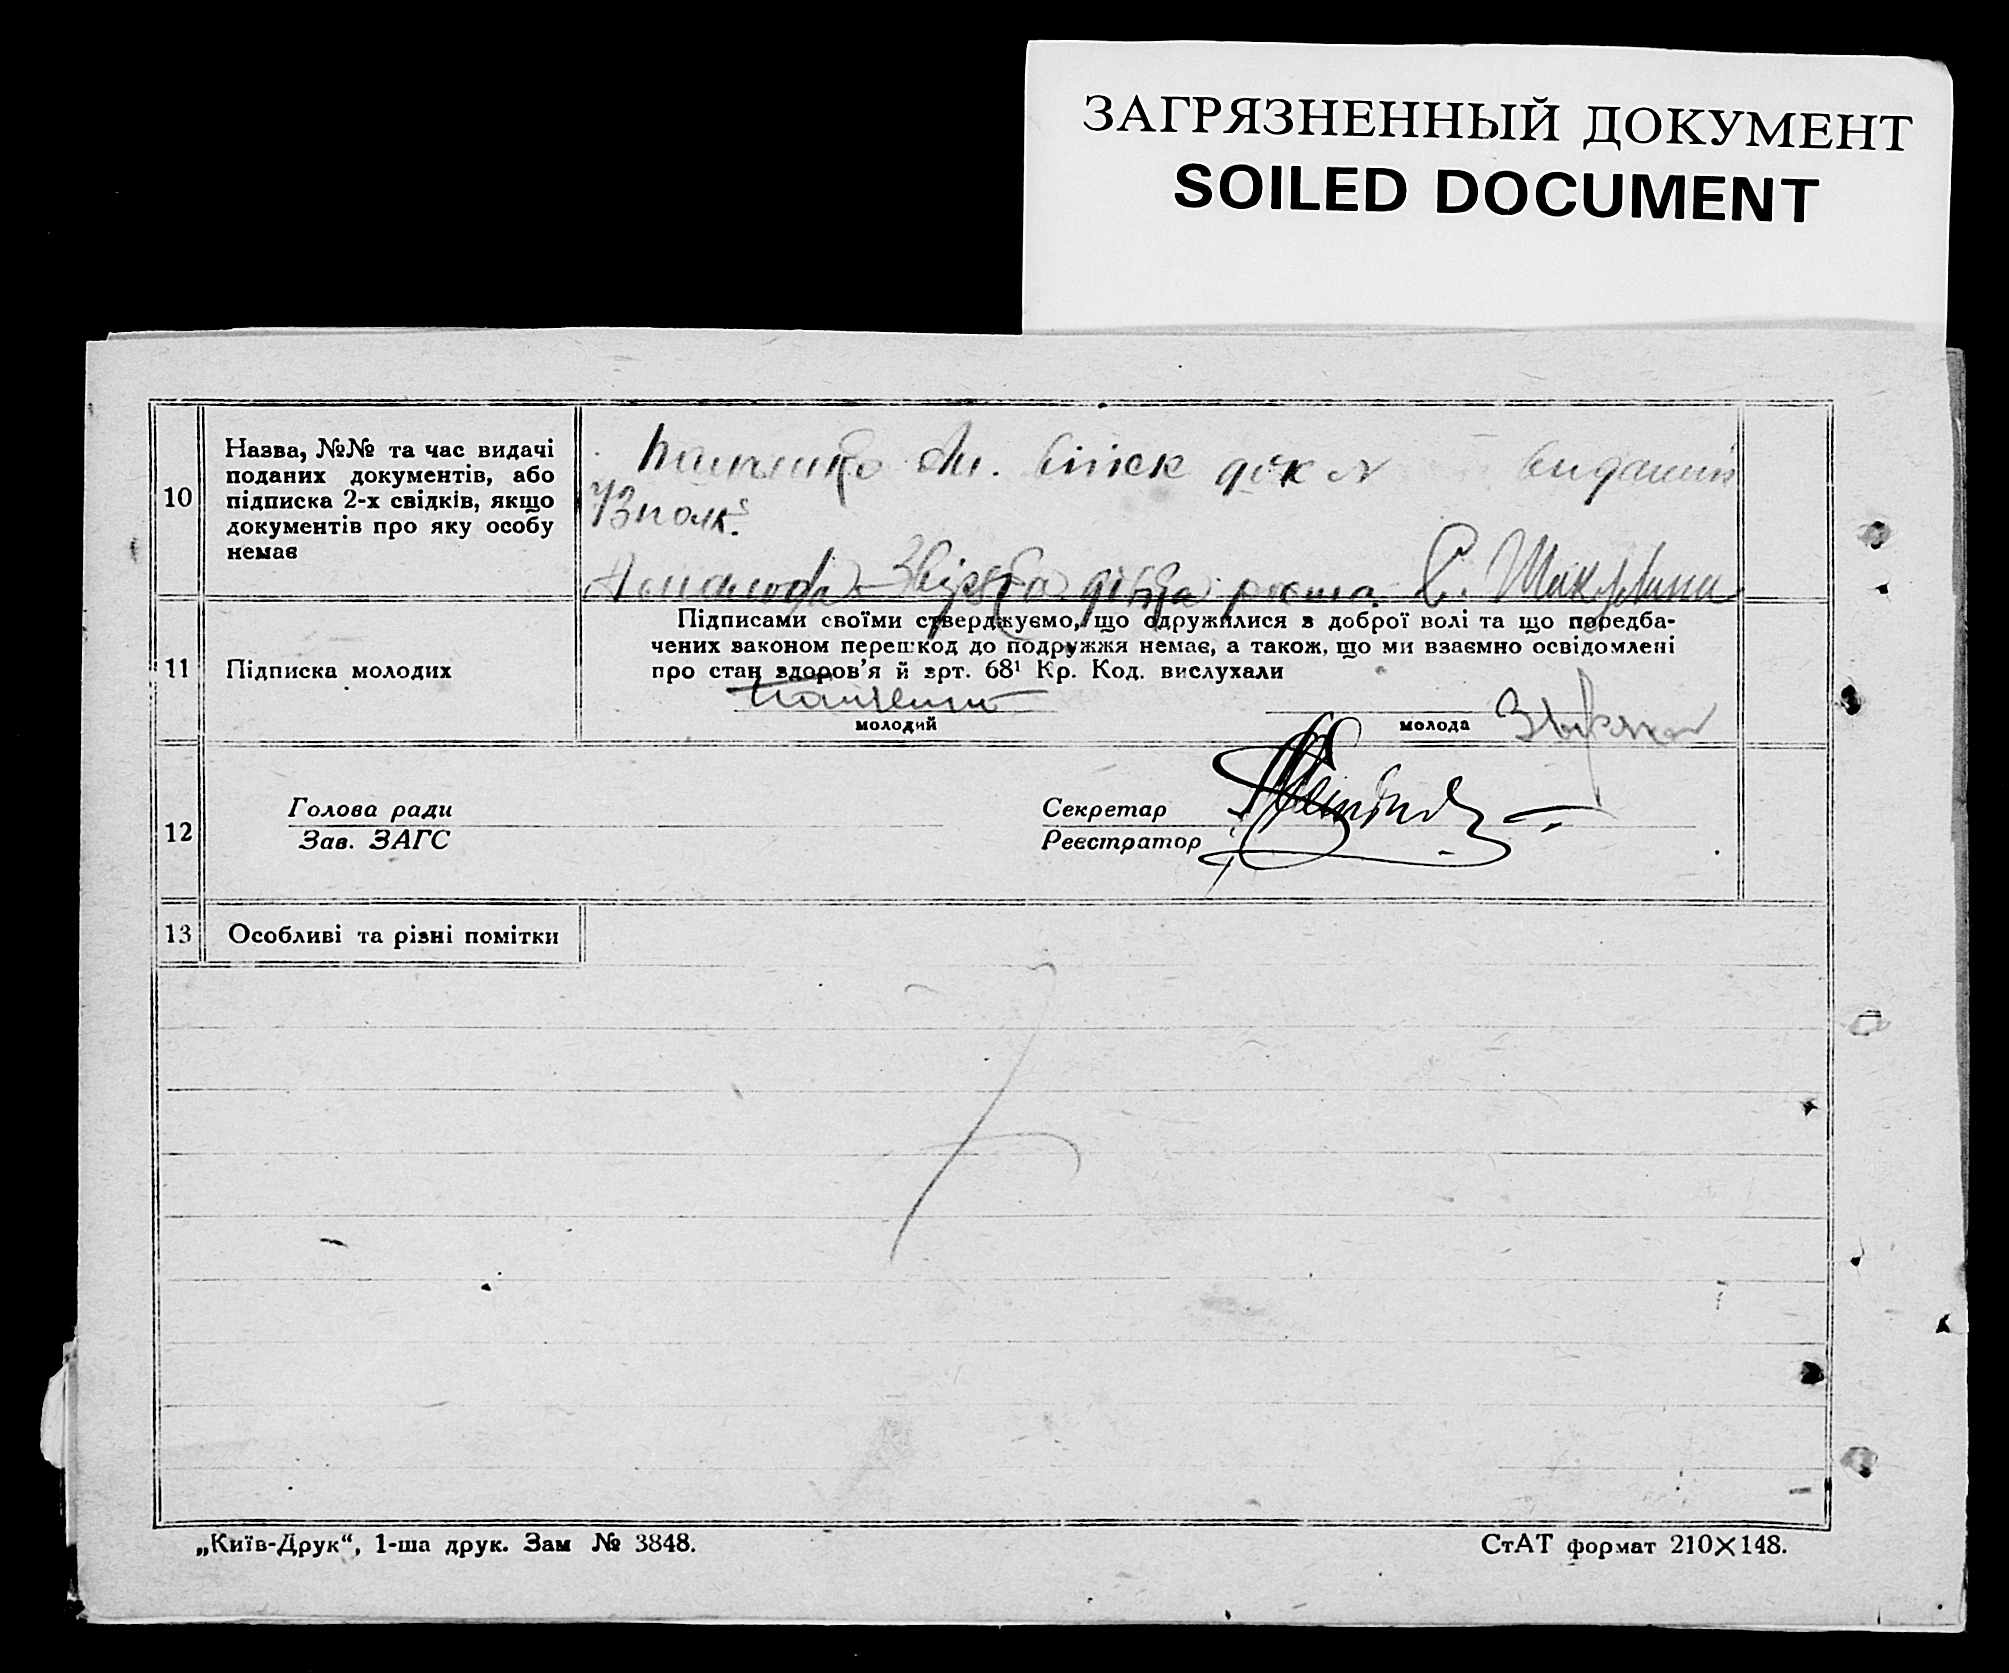 ЗАГРЯЗНЕННЫЙ ДОКУМЕНТ
SOILED DOCUMENT
10
Назва, №№ та час видачі
поданих документів, або
підписка 2-х свідків, якщо
документів про яку особу
немає
військ док N виданий
73 полк.
11
Підписка молодих
Підписами своїми стверджуємо, що одружилися з доброї волі та що передба-
чених законом перешкод до подружжя немає, а також, що ми взаємно освідомлені
про стан здоров'я й арт. 68¹ Кр. Код. вислухали
молодий
молода
12
Голова ради
Зав. ЗАГС
Секретар
Реєстратор
13
Особливі та різні помітки
„Київ-Друк“, 1-ша друк. Зам № 3848.
СтАТ формат 210×148.